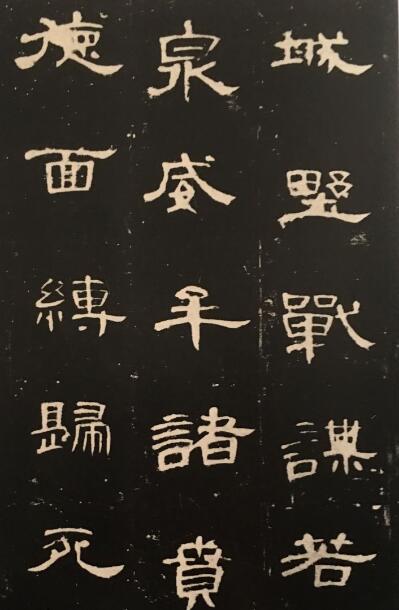 城墅戰謀若
泉威牟諸賁
德面縛歸死